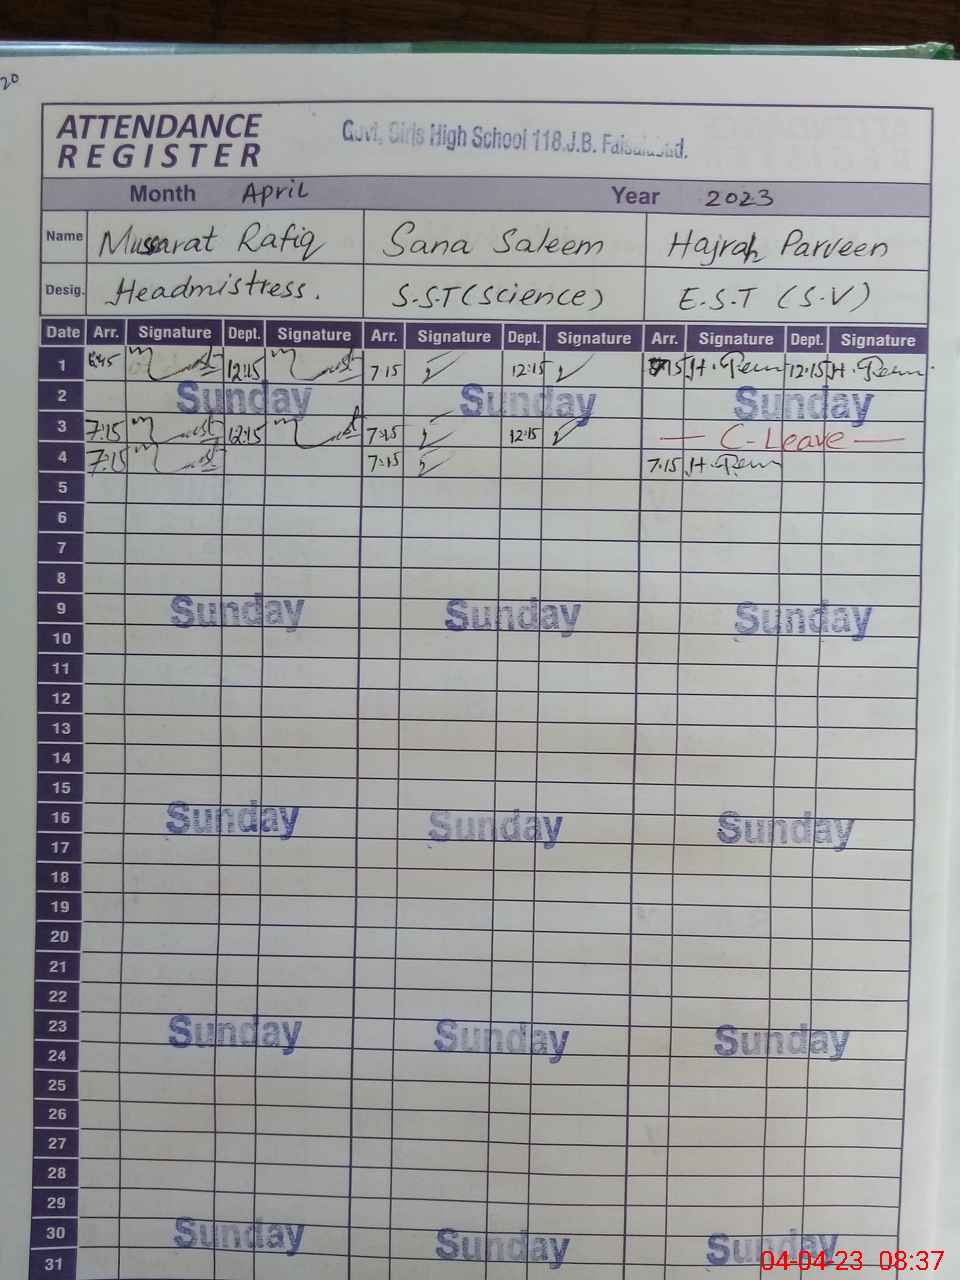 20
ATTENDANCE
REGISTER
Govt, Girls High School 118.J.B. Faisalabad.
Month April Year 2023
Name Mussarat Rafiq Sana Saleem Hajrah Parveen
Desig. Headmistress. S.S.T (Science) E.S.T (S.V)
Date Arr. Signature Dept. Signature Arr. Signature Dept. Signature Arr. Signature Dept. Signature
1 12:15 7.15 12:15 12:15
2 Sunday Sunday Sunday
3 7:15 12:15 7:15 12:15 — C-Leave —
4 7:15 7:15 7.15
5
6
7
8
9 Sunday Sunday Sunday
10
11
12
13
14
15
16 Sunday Sunday Sunday
17
18
19
20
21
22
23 Sunday Sunday Sunday
24
25
26
27
28
29
30 Sunday Sunday Sunday
31
04-04-23 08:37